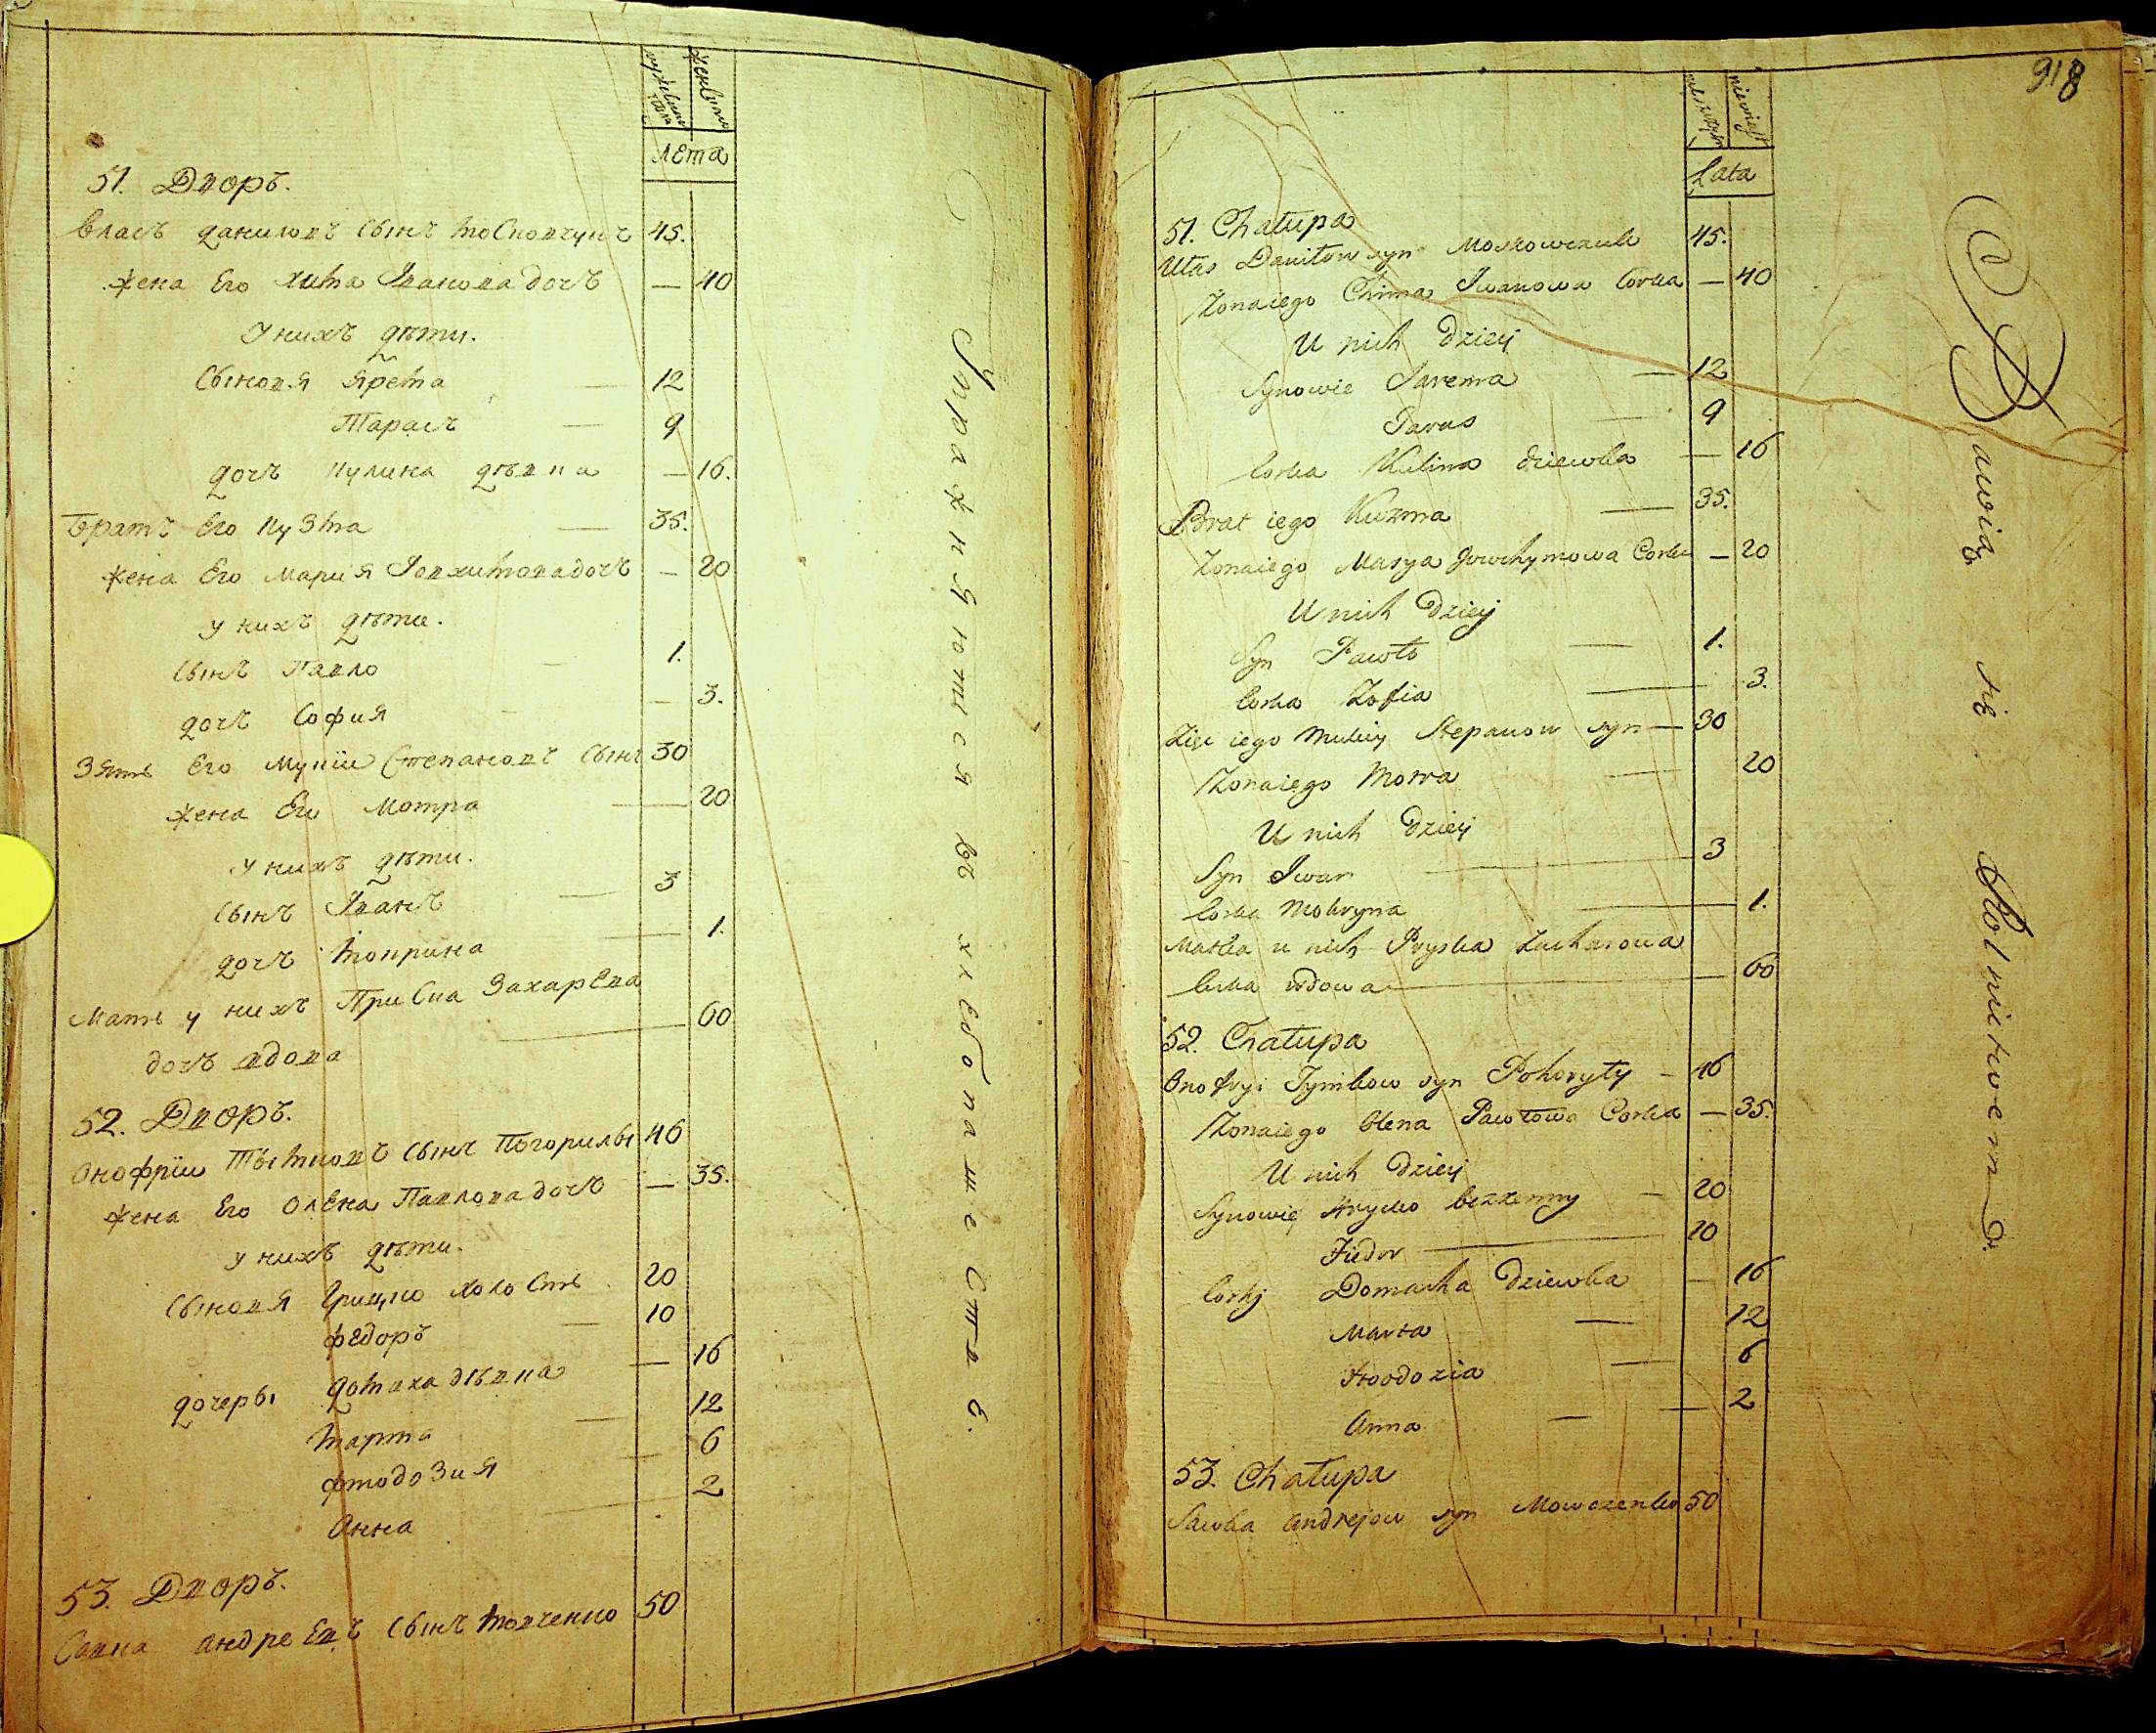 мужеска пола
женска
лета
51. Дворъ.
Власъ даниловъ сынъ московчукъ 45.
жена Его хима Іванова дочъ — 40
У нихъ дѣти.
Сыновя Ярема — 12
Тарасъ — 9
дочъ кулина дѣвка — 16.
Братъ Его кузма — 35.
жена Его Мария Іовхимова дочъ — 20
у нихъ дѣти.
сынъ Павло — 1.
дочъ София — 3.
Зять Его Мукіи Степановъ сынъ 30
жена Его Мотра — 20
у нихъ дѣти.
сынъ Іванъ — 3
дочъ мокрина — 1.
Мать у нихъ Приска Захарева
дочъ вдова — 60
52. Дворъ.
Онофріи Тымковъ сынъ Погорилы 46
жена Его Олена Павлова дочъ — 35.
у нихъ дѣти.
Сыновя Грицко холостъ 20
федоръ — 10
дочеры домаха дѣвка — 16
марта — 12
фтодозия — 6
Анна — 2
53. Дворъ.
Савка андреевъ сынъ мовченко 50
Упражняются въ хлебопашествѣ.
918
Lata
51. Chałupa
Ułas Daniłow syn Moskowczuk 45.
Żona iego Chima Iwanowa Corka — 40
U nich dzieij
Synowie Jarema — 12
Taras — 9
Corka Kulina dziewka — 16
Brat iego Kuzma — 35.
Żona iego Marya Jowchymowa Corka — 20
U nich Dzieij
Syn Pawło — 1.
Corka Zofia — 3.
Zięc iego Mukiy Stepanow syn — 30
Żona iego Motra — 20
U nich Dzieij
Syn Iwan — 3
Corka Mokryna — 1.
Matka u nich Pryska Zacharowa
Corka wdowa — 60
52. Chałupa
Onofryi Tymkow syn Pohoryły — 46
Żona iego Olena Pawłowa Corka — 35.
U nich dzieij
Synowie Hrycko bezżenny — 20
Fiedor — 10
Corkj Domacha Dziewka — 16
Marta — 12
Ftodozia — 6
Anna — 2
53. Chałupa
Sawka Andrejow syn Mowczenko 50
Bawią się Rolnictwem.